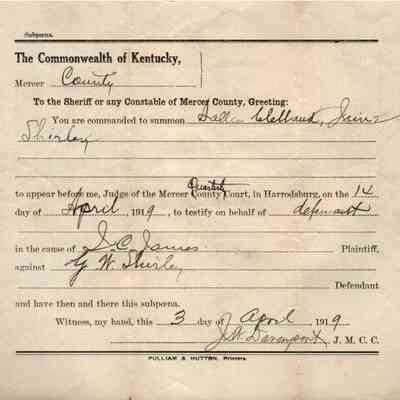 Subpœna.
The Commonwealth of Kentucky,
Mercer County
To the Sheriff or any Constable of Mercer County, Greeting:
You are commanded to summon
Shirley
to appear before me, Judge of the Mercer Quarterly County Court, in Harrodsburg, on the 14
day of April, 1919, to testify on behalf of defendant
in the cause of J. C. James Plaintiff,
against G. W. Shirley
Defendant
and have then and there this subpœna.
Witness, my hand, this 3 day of April, 1919
J. W. Davenport, J. M. C. C.
PULLIAM & HUTTON, Printers